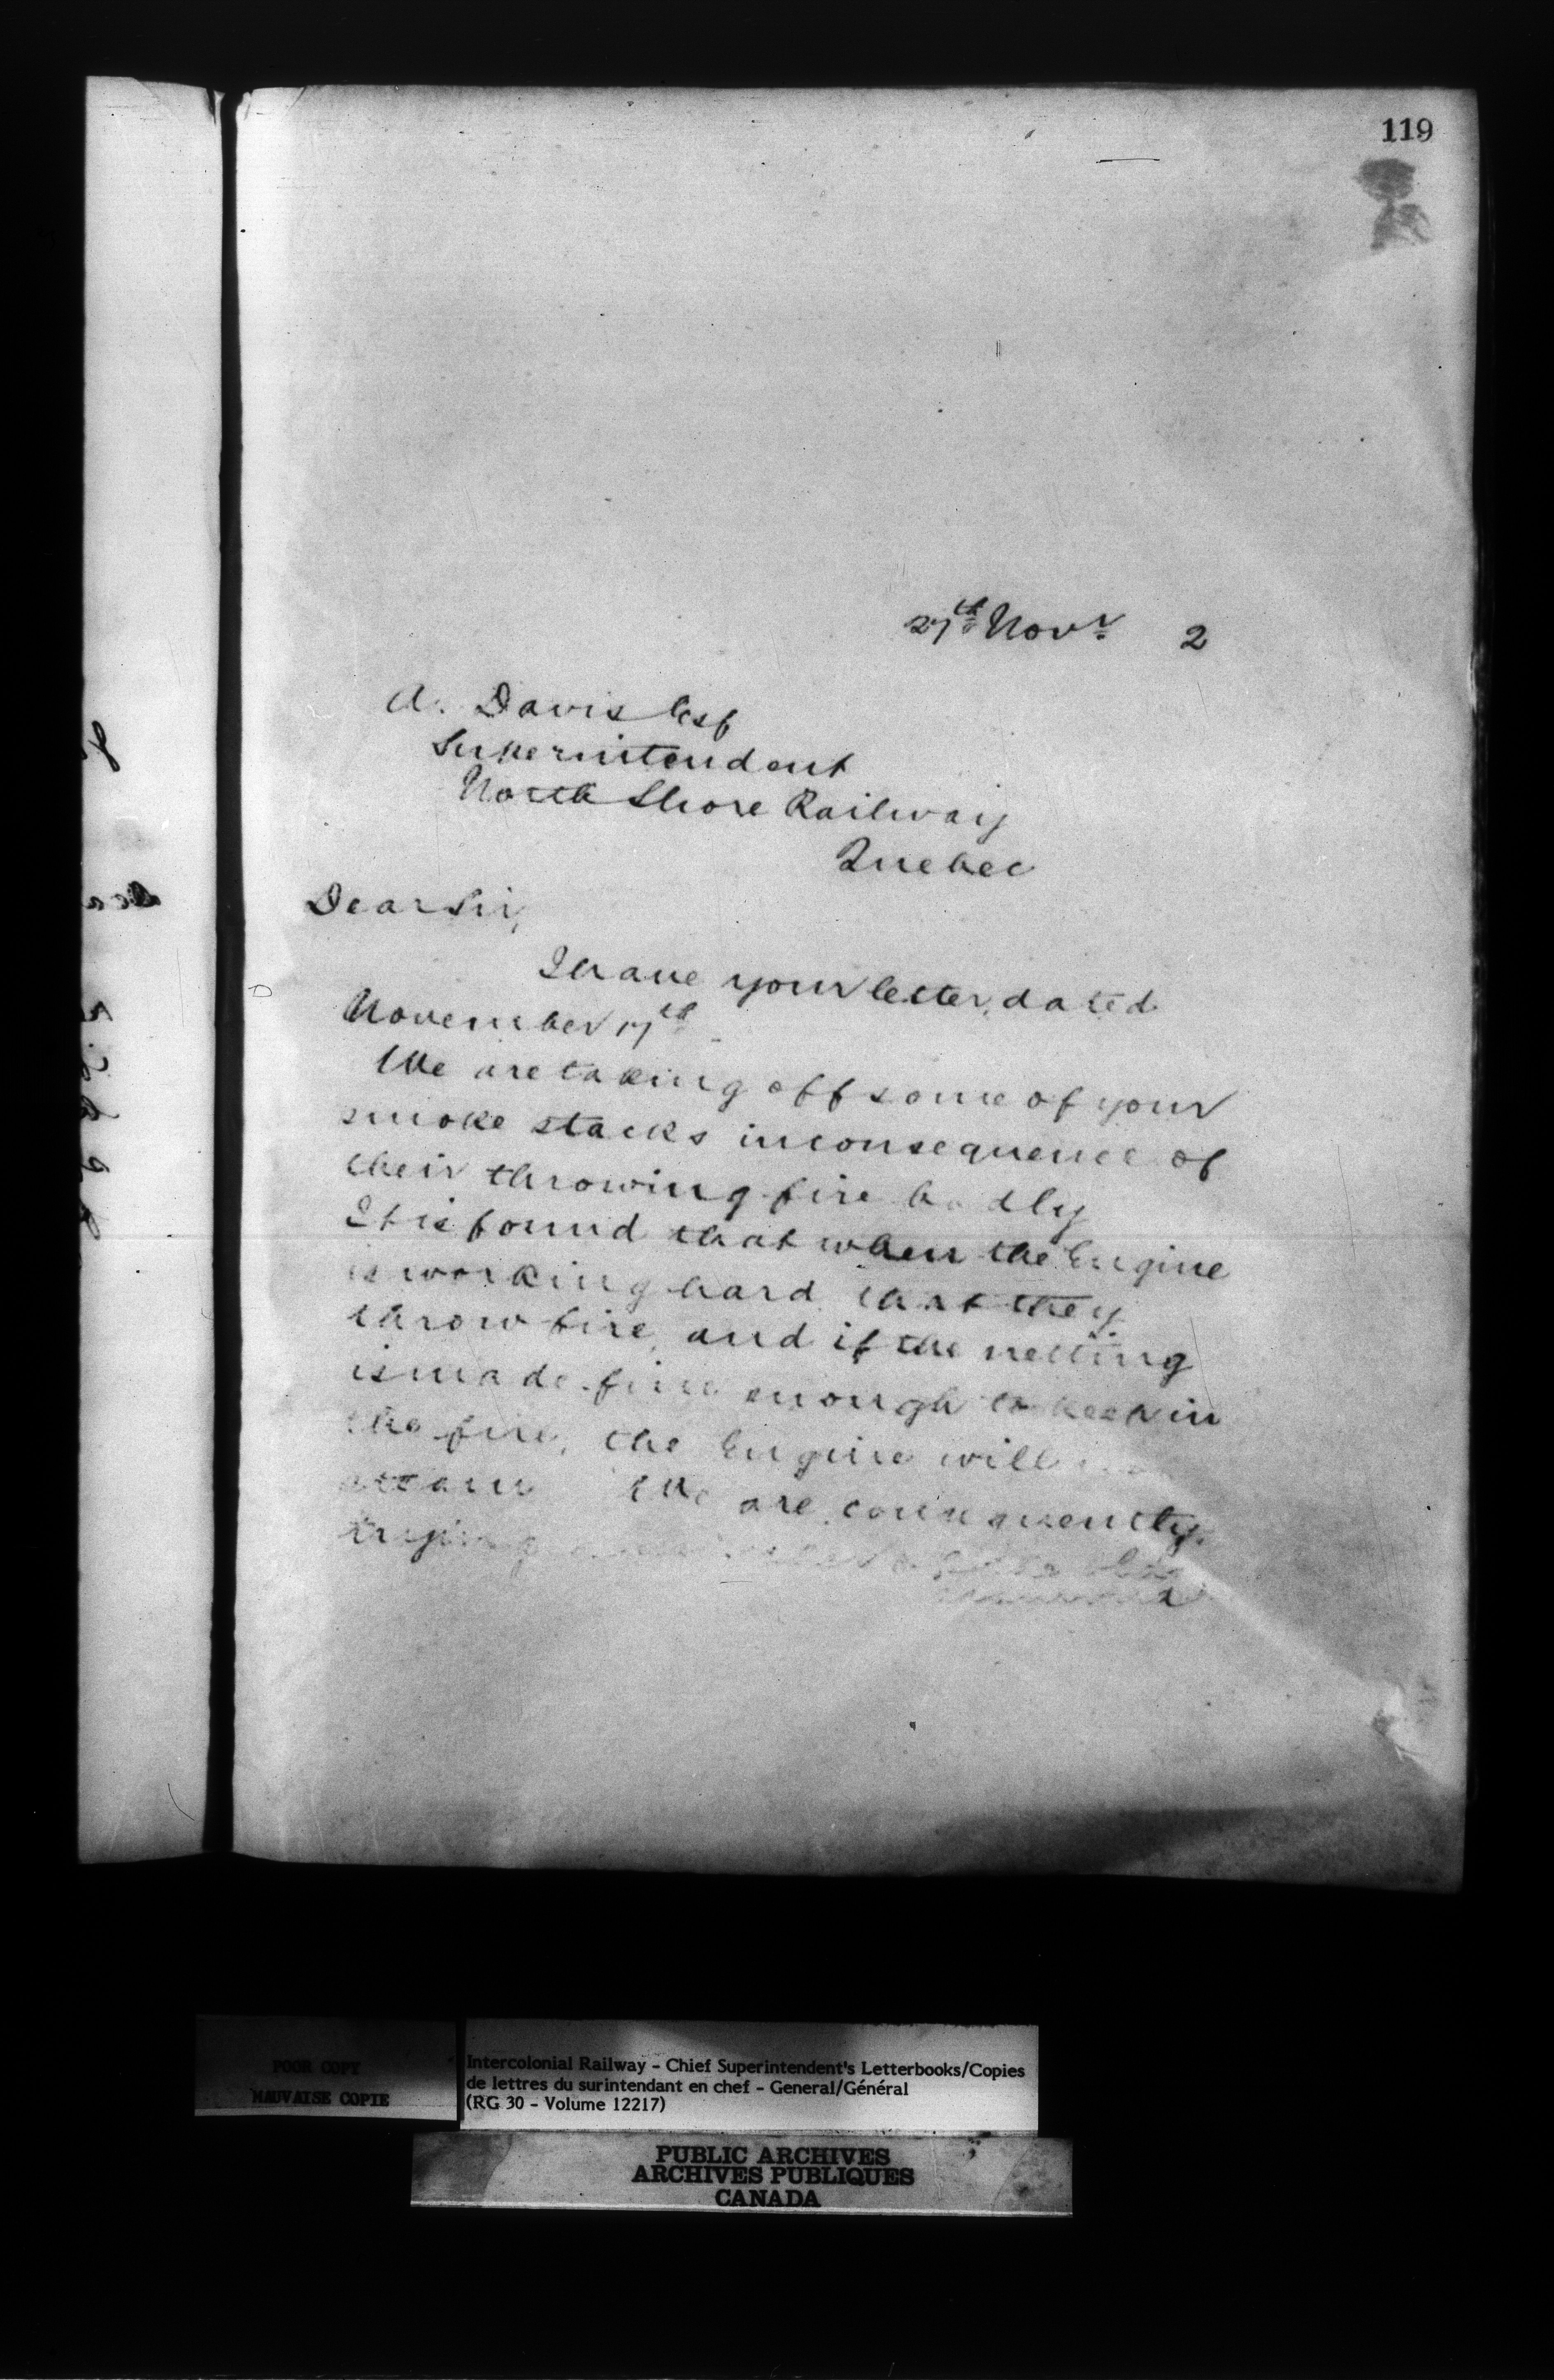 119
27th Novr 2
A. Davis Esq
Superintendent
North Shore Railway
Quebec
Dear Sir,
I have your letter, dated
November 17th
We are taking off some of your
smoke stacks in consequence of
their throwing fire badly
It is found that when the Engine
is working hard that they
throw fire, and if the netting
is made fine enough to keep in
the fire, the Engine will
steam We are consequently
trying
POOR COPY
MAUVAISE COPIE
Intercolonial Railway - Chief Superintendent's Letterbooks/Copies
de lettres du surintendant en chef - General/Général
(RG 30 - Volume 12217)
PUBLIC ARCHIVES
ARCHIVES PUBLIQUES
CANADA